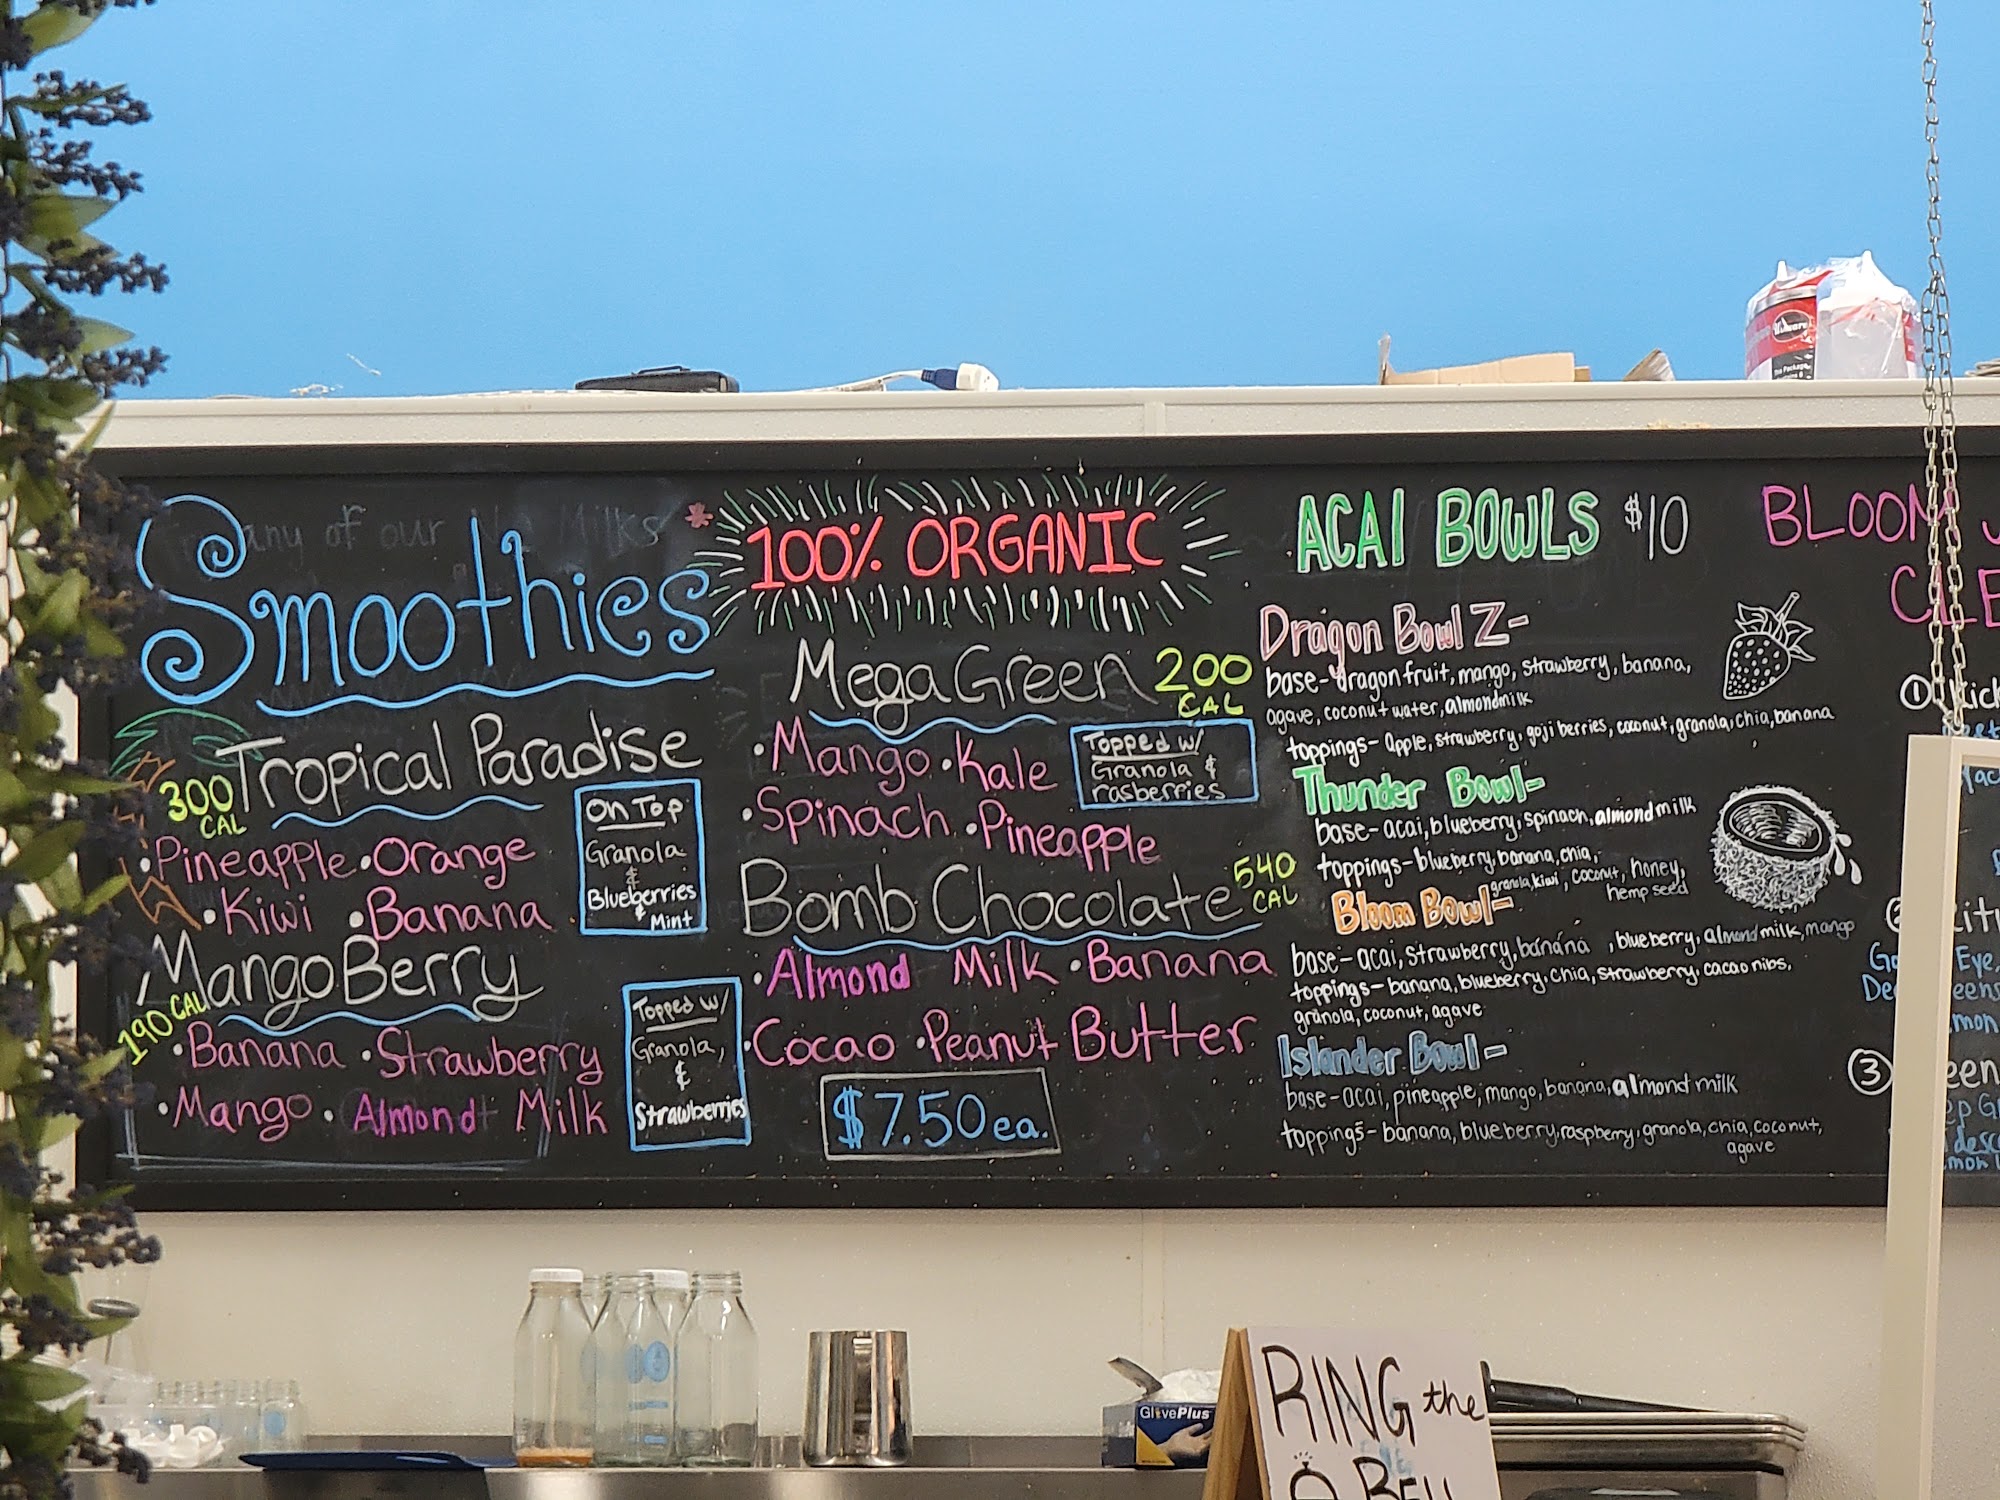 any of our Milks *
Smoothies
100% ORGANIC
Tropical Paradise
300
CAL
•Pineapple •Orange
•Kiwi •Banana
On Top
Granola
&
Blueberries
& Mint
MangoBerry
190 CAL
•Banana •Strawberry
•Mango • Almond Milk
Topped w/
Granola,
&
Strawberries
Mega Green
200
CAL
•Mango •Kale
•Spinach •Pineapple
Topped w/
Granola &
rasberries
Bomb Chocolate
540
CAL
•Almond Milk •Banana
•Cocao •Peanut Butter
$7.50 ea.
ACAI BOWLS $10
Dragon Bowl Z-
base-dragonfruit, mango, strawberry, banana,
agave, coconut water, almondmilk
toppings- apple, strawberry, goji berries, coconut, granola, chia, banana
Thunder Bowl-
base- acai, blueberry, spinach, almond milk
toppings-blueberry, banana, chia,
granola, kiwi, coconut, honey,
hemp seed
Bloom Bowl-
base- acai, strawberry, banana , blueberry, almond milk, mango
toppings- banana, blueberry, chia, strawberry, cacao nibs,
granola, coconut, agave
Islander Bowl-
base-acai, pineapple, mango, banana, almond milk
toppings- banana, blueberry, raspberry, granola, chia, coconut,
agave
BLOOM
CLE
1
2
Eye,
3
GlovePlus
RING the
BELL